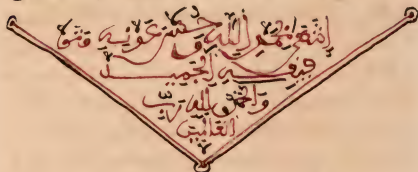 انتهى بحمد الله وحسن عونه وتو
فيقه الجميل
والحمد لله رب
العالمين